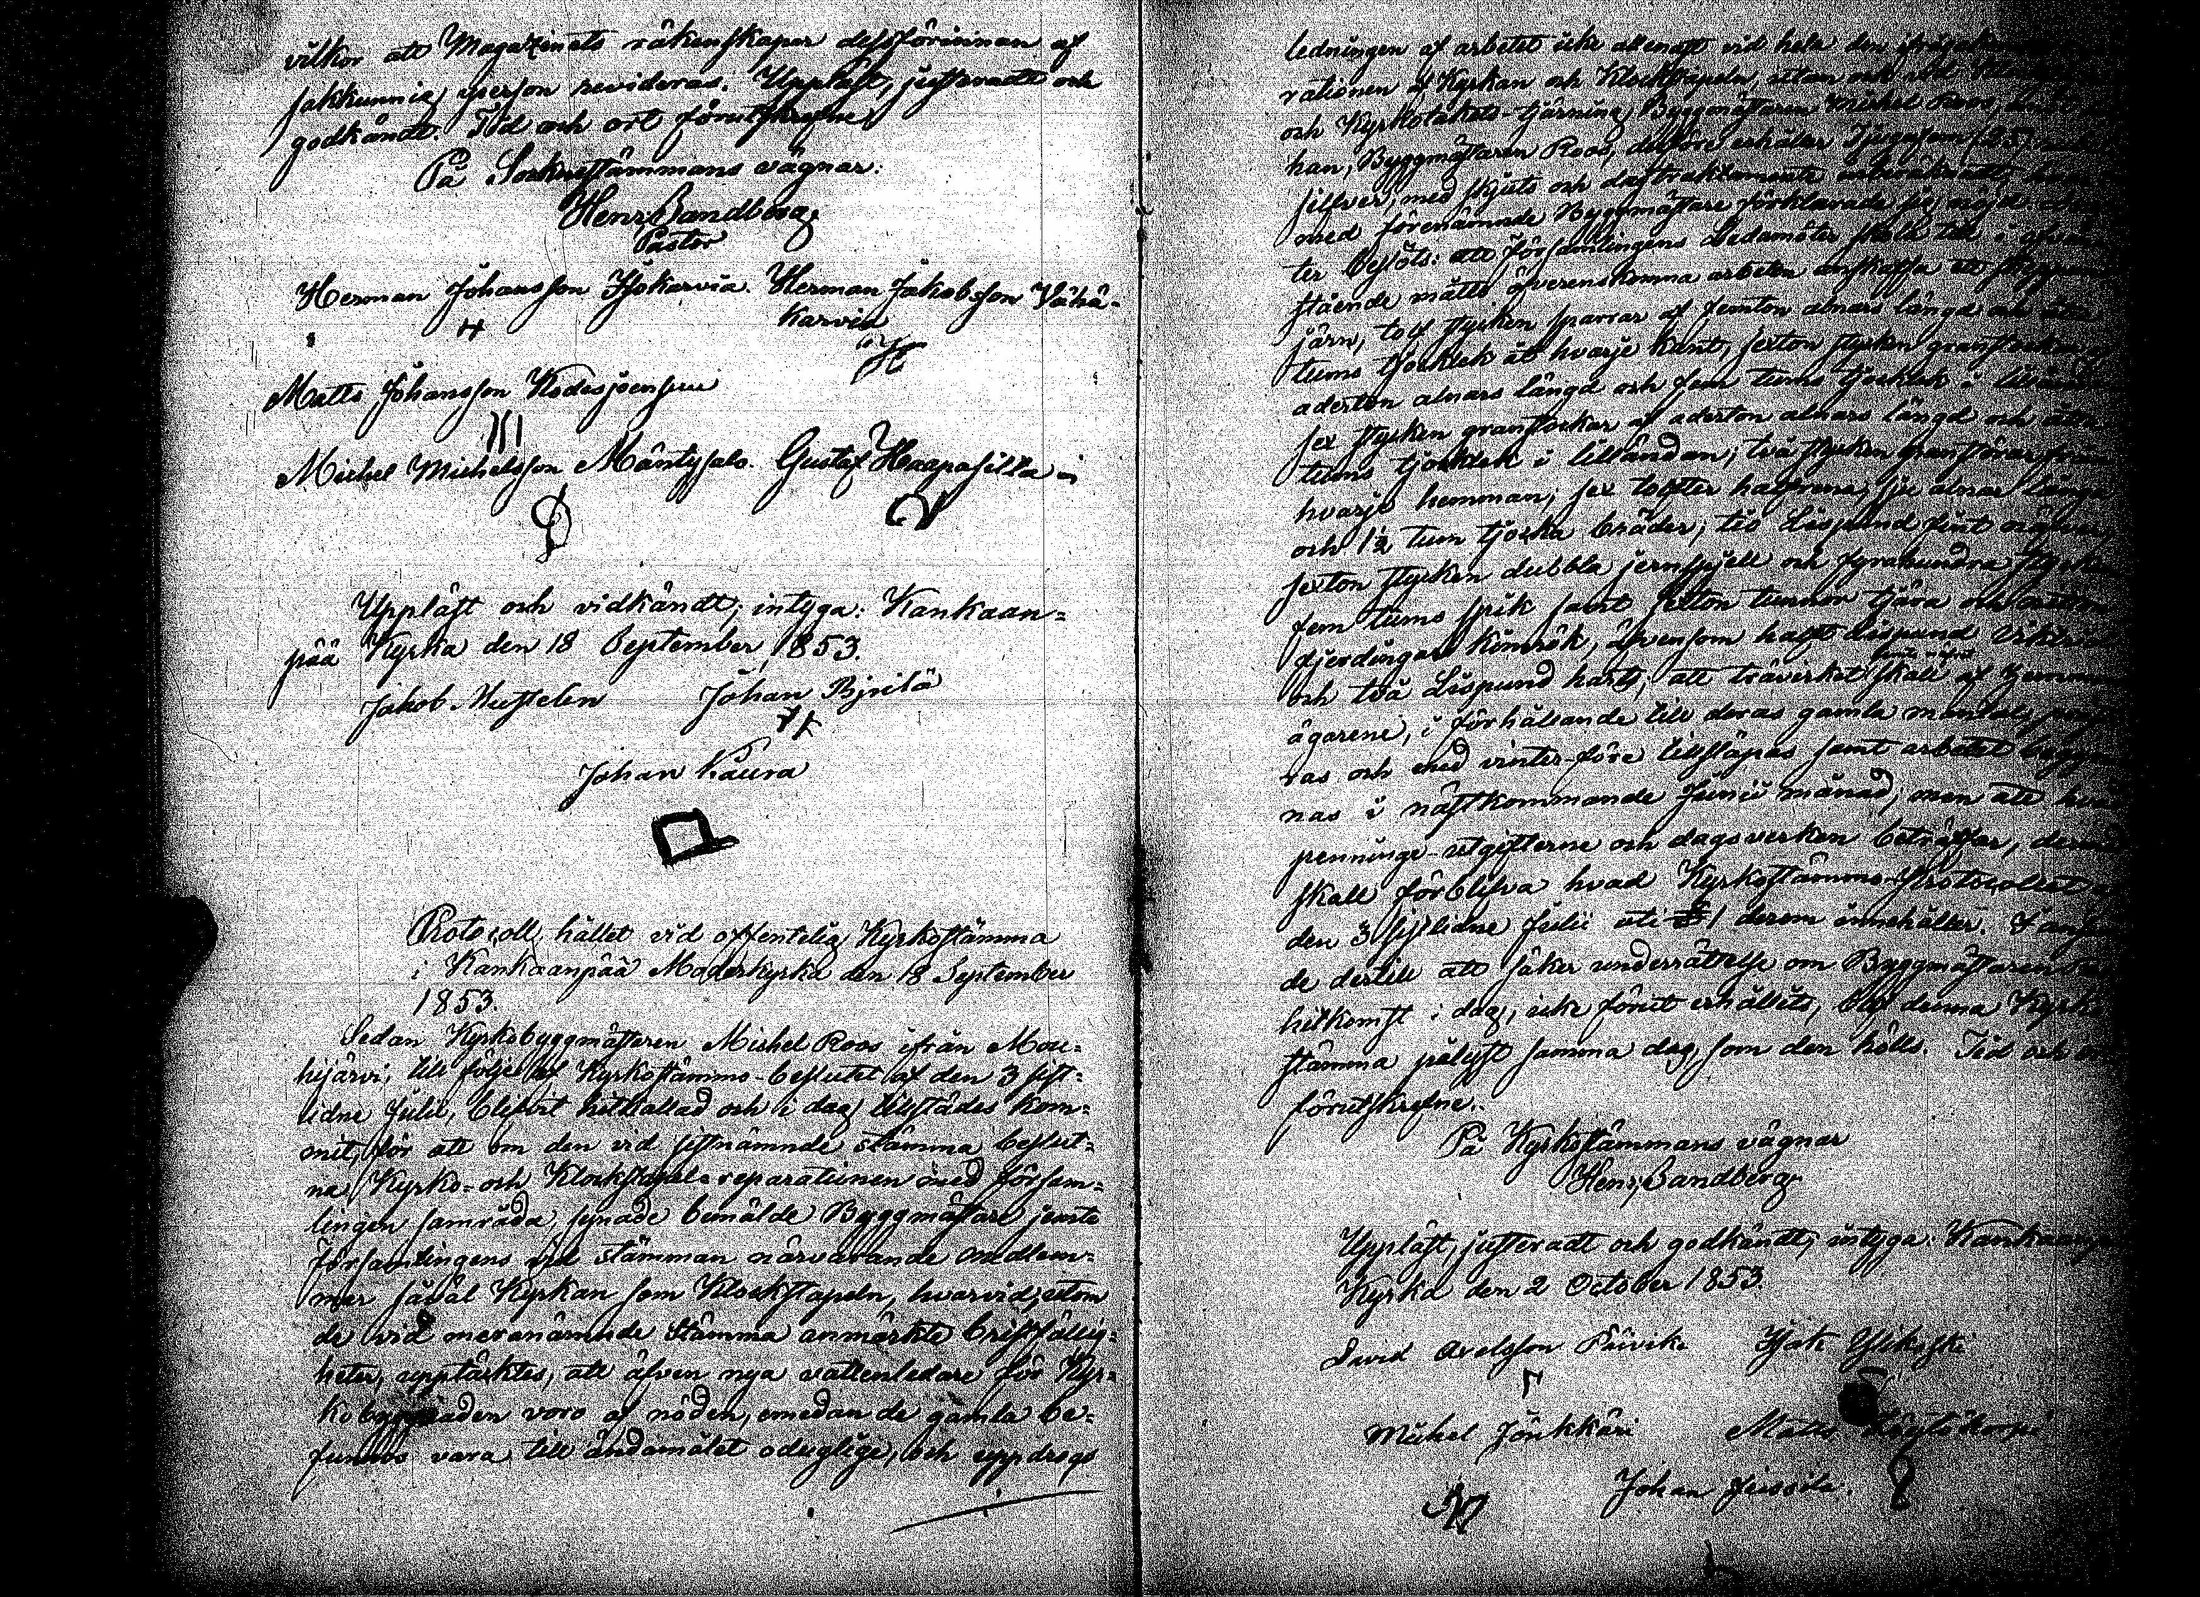 vilkor att Magazinets räkenskaper dessförinnan af
sakkunnig person revideras. Uppläst, justeradt och
godkändt. Tid och ort förutskrefne.
På Socknestämmans vägnar:
Henr. Sandberg
Pastor
Herman Johansson Isokarvia Herman Jakobsson Vähä-
karvia
Matts Johansson
Michel Michelsson Mäntysalo. Gustaf Haapasilta
Uppläst och vidkändt, intyga: Kankaan-
pää Kyrka den 18 September 1853.
Jakob Mustelin Johan
Johan Kaura
Protocoll, hållet vid offentelig Kyrkostämma
i Kankaanpää Moderkyrka den 18 September
1853.
Sedan Kyrkobyggmästaren Michel Roos ifrån Mou-
hijärvi, till följe af Kyrkostämmo-beslutet af den 3 sist-
lidne Julii, blifvit hitkallad och i dag tillstädes kom-
mit, för att om den vid sistnämnde stämma beslut-
na Kyrko- och Klockstapel-reparationen med försam-
lingen samråda, synade bemälde Byggmästare jemte
församlingens vid stämman närvarande medlem-
mar såväl Kyrkan som Klockstapeln, hvarvid, utom
de vid meranämnde stämma anmärkte bristfällig-
heter, upptäcktes, att äfven nya vattenledare för Kyr-
kobyggnaden voro af nöden, emedan de gamla be-
funnos vara till ändamålet odugliga, och uppdrogs
ledningen af arbetet icke allenast vid hela den
rationen af Kyrkan och Klockstapeln, utan och vid
och Kyrkotakets-tjärning, Byggmästaren Michel Roos,
han, Byggmästaren Roos, derföre erhåller Tjugufem (25)
silfver, med skjuts och dagtraktamente
med förenämnde Byggmästare förklarade sig nöjd.
ter beslöts: att församlingens Ledamöter skola till
stående måtto öfverenskomna arbeten anskaffa ett
järn, tolf stycken sparrar af femton alnars längd och
tums tjocklek åt hvarje kant, sexton stycken granstockar
aderton alnars längd och fem tums tjocklek i lilländan
sex stycken granstockar af aderton alnars längd och åtta
tums tjocklek i lilländan, två stycken granstörar från
hvarje hemman, sex tolfter halfrena, sju alnar långa
och 1½ tum tjocka bräder, tio Lispund
sexton stycken dubbla jernspjell och fyrahundra stycken
fem tums spik samt sexton tunnor tjära och
fjerdingar kimrök, äfvensom halft Lispund
och två Lispund harts; att trävirket skall af hemmans-
ägarene, i förhållande till deras gamla mantal,
ras och med vinter-före tillsläpas samt arbetet begyn-
nas i nästkommande Junii månad; men att hvad
penninge-utgifterne och dagsverken beträffar,
skall förblifva hvad Kyrkostämmo-Protocollet af
den 3 sistlidne Julii uti § 1 derom innehåller.
de dertill att säker underrättelse om Byggmästaren
hitkomst i dag, icke förut erhållits, blef denna Kyrko-
stämma pålyst samma dag, som den hölls. Tid och
förutskrefne.
På Kyrkostämmans vägnar
Henr. Sandberg
Uppläst, justeradt och godkändt, intyga: Kankaanpää
Kyrka den 2 October 1853.
David Axelsson
Michel Jänkkäri Matts
Johan